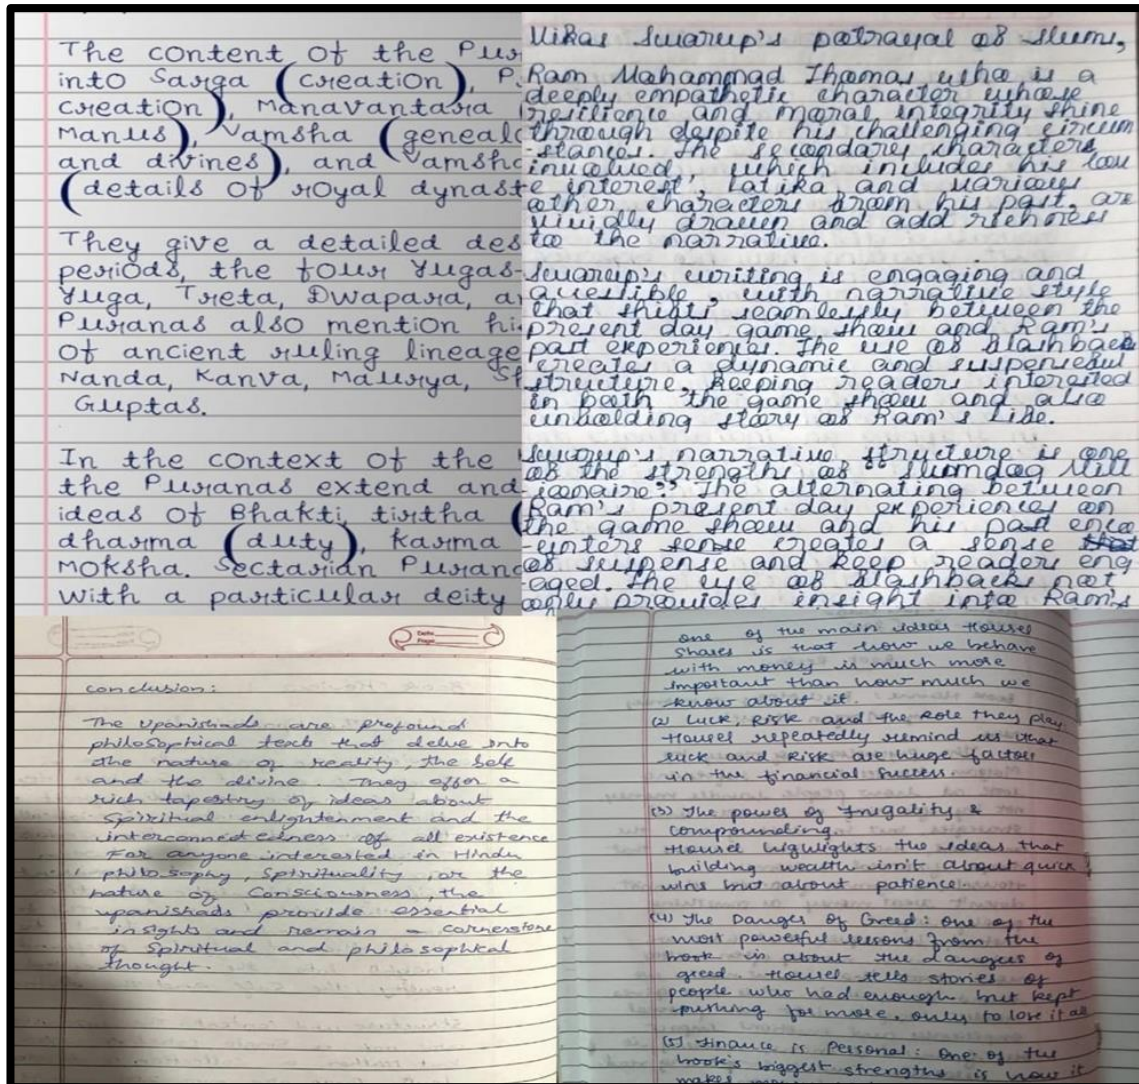 The content of the Pur
into Sarga (creation), P
creation), Manavantara
Manus), Vamsha (genealo
and divines), and Vamsha
(details of royal dynast
They give a detailed des
periods, the four Yugas-
Yuga, Treta, Dwapara, a
Puranas also mention his
of ancient ruling lineage
Nanda, Kanva, Maurya, Sh
Guptas.
In the context of the
the Puranas extend and
ideas of Bhakti, tirtha (
dharma (duty), Karma
Moksha. Sectarian Purana
with a particular deity
Vikas Swarup's potrayal of slums,
Ram Mohammad Thomas who is a
deeply empathetic character whose
resilience and moral integrity shine
through despite his challenging circum
-stances. The secondary characters
involved, which includes his lov
e interest, Latika and various
other characters from his past, are
vividly drawn and add richness
to the narrative.
Swarup's writing is engaging and
accessible, with narrative style
that shifts seamlessly between the
present day game show and Ram's
past experiences. The use of flashback
creates a dynamic and suspenseful
structure, keeping readers interested
in both the game show and also
unfolding story of Ram's Life.
Swarup's narrative structure is one
of the strengths of "Slumdog Mill
-ionaire". The alternating between
Ram's present day experiences on
the game show and his past enco
-unters sense creates a sense that
of suspense and keep readers eng
-aged. The use of flashbacks not
only provides insight into Ram's
Date
Page
conclusion:
The Upanishads are profound
philosophical texts that delve into
the nature of reality, the self
and the divine. They offer a
rich tapestry of ideas about
Spiritual enlightenment and the
interconnectedness of all existence
For anyone interested in Hindu
philosophy, Spirituality, or the
nature of Consciousness, the
upanishads provide essential
insights and remain a cornerstone
of Spiritual and philosophical
thought.
one of the main ideas Housel
Shares is that how we behave
with money is much more
important than how much we
know about it.
(2) Luck, Risk and the Role they play
Housel repeatedly remind us that
luck and Risk are huge factors
in the financial success.
(3) The power of Frugality &
compounding
Housel highlights the ideas that
building wealth isn't about quick
wins but about patience
(4) The Danger of Greed: one of the
most powerful lessons from the
book is about the dangers of
greed. Housel tells stories of
people who had enough but kept
pushing for more, only to lose it all
(5) Finance is Personal: One of the
book's biggest strengths is how it
makes